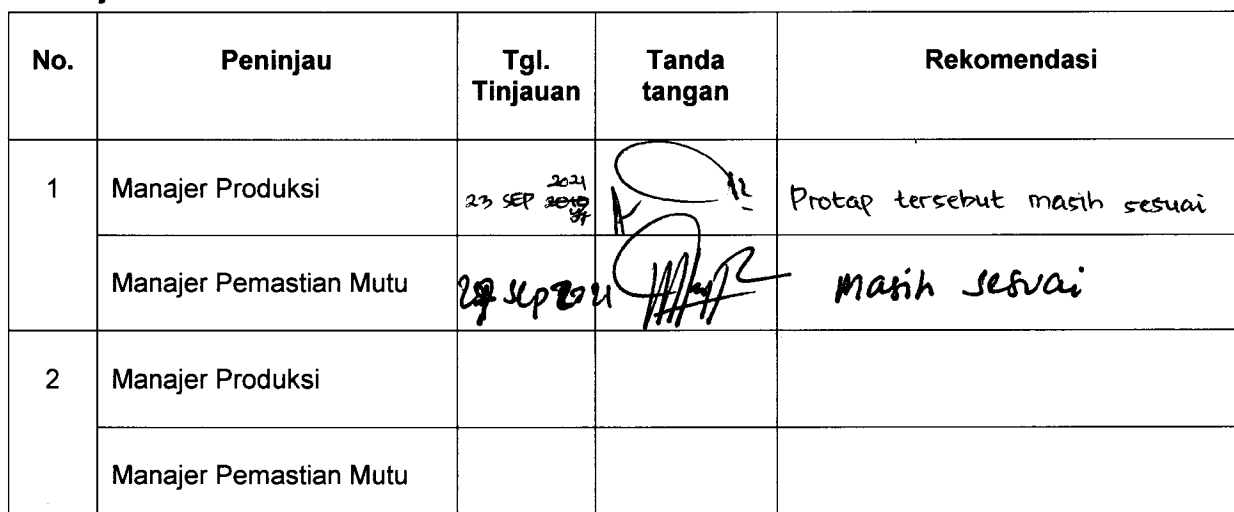 No. Peninjau Tgl. Tinjauan Tanda tangan Rekomendasi
1 Manajer Produksi 23 SEP 2021 Protap tersebut masih sesuai
Manajer Pemastian Mutu Sep 2021 masih sesuai
2 Manajer Produksi
Manajer Pemastian Mutu